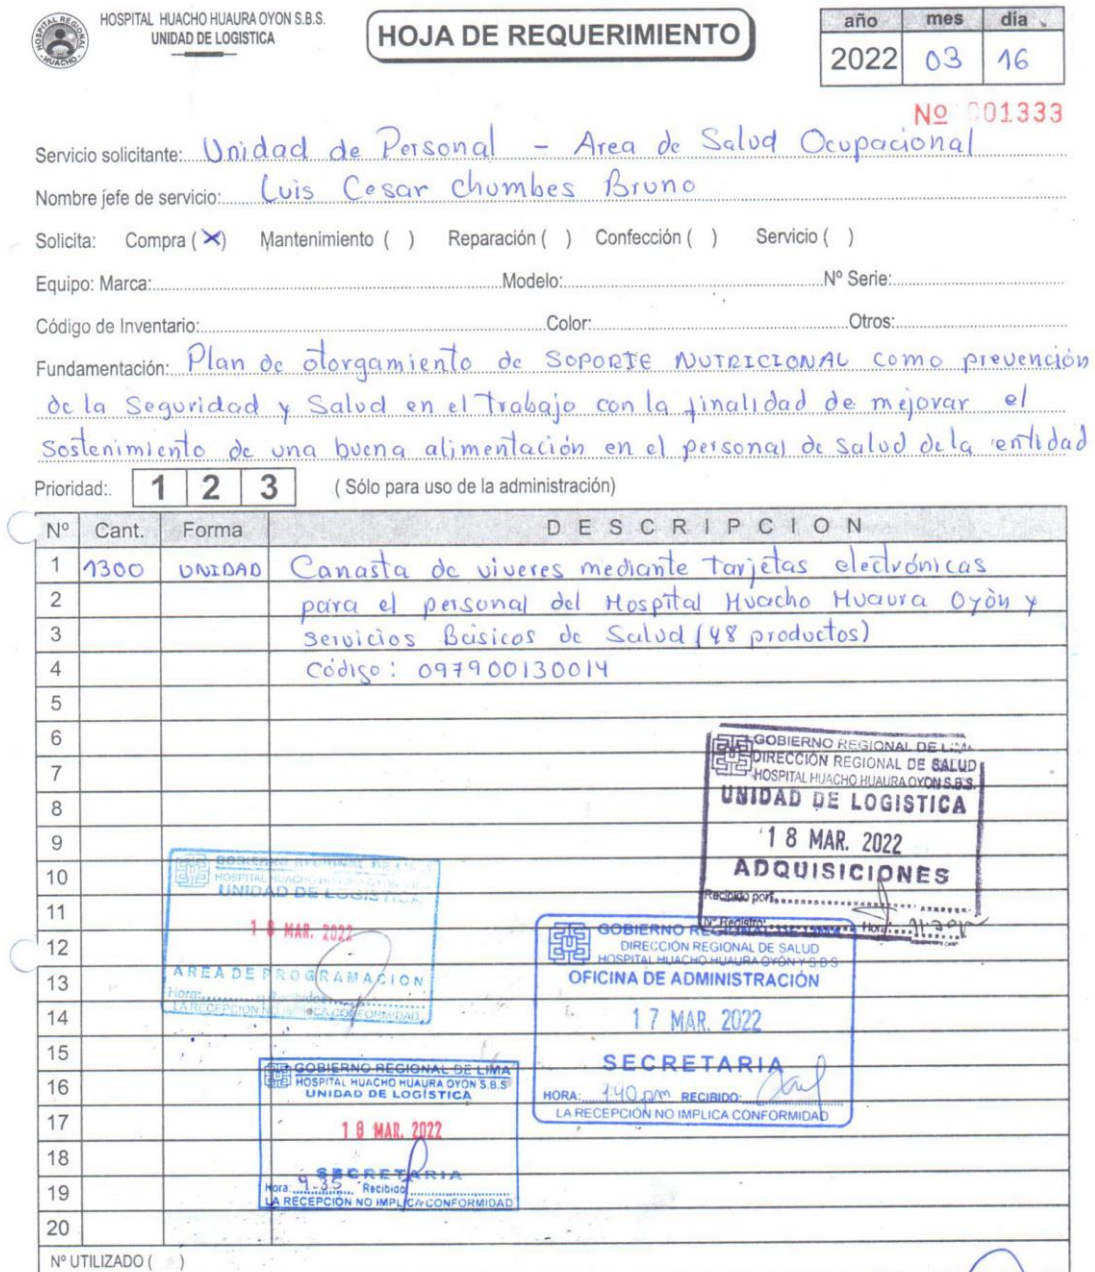 HOSPITAL HUACHO HUAURA OYON S.B.S.
UNIDAD DE LOGISTICA
HOSPITAL REGIONAL HUACHO
HOJA DE REQUERIMIENTO
año mes día
2022 03 16
Nº 001333
Servicio solicitante: Unidad de Personal - Area de Salud Ocupacional
Nombre jefe de servicio: Luis Cesar Chumbes Bruno
Solicita: Compra (X) Mantenimiento ( ) Reparación ( ) Confección ( ) Servicio ( )
Equipo: Marca: Modelo: Nº Serie:
Código de Inventario: Color: Otros:
Fundamentación: Plan de otorgamiento de SOPORTE NUTRICIONAL como prevención
de la Seguridad y Salud en el Trabajo con la finalidad de mejorar el
Sostenimiento de una buena alimentación en el personal de Salud de la entidad
Prioridad:. 1 2 3 ( Sólo para uso de la administración)
Nº Cant. Forma DESCRIPCION
1 1300 UNIDAD Canasta de viveres mediante tarjetas electrónicas
2 para el personal del Hospital Huacho Huaura Oyòn y
3 Servicios Básicos de Salud (48 productos)
4 Código: 097900130014
5
6
7
8
9
10
11
12
13
14
15
16
17
18
19
20
GOBIERNO REGIONAL DE LIMA
DIRECCIÓN REGIONAL DE SALUD
HOSPITAL HUACHO HUAURA OYON S.B.S.
UNIDAD DE LOGISTICA
18 MAR. 2022
ADQUISICIONES
Recibido por:
Nº Registro: Hora:
GOBIERNO REGIONAL DE LIMA
HOSPITAL HUACHO HUAURA OYON S.B.S
UNIDAD DE LOGISTICA
18 MAR. 2022
AREA DE PROGRAMACION
Hora: Recibido:
LA RECEPCIÓN NO IMPLICA CONFORMIDAD
GOBIERNO REGIONAL DE LIMA
DIRECCIÓN REGIONAL DE SALUD
HOSPITAL HUACHO HUAURA OYÓN Y S.B.S
OFICINA DE ADMINISTRACIÓN
17 MAR. 2022
SECRETARIA
HORA: pm RECIBIDO:
LA RECEPCIÓN NO IMPLICA CONFORMIDAD
GOBIERNO REGIONAL DE LIMA
HOSPITAL HUACHO HUAURA OYÓN S.B.S
UNIDAD DE LOGÍSTICA
18 MAR. 2022
SECRETARIA
Hora: 9.35 Recibido
LA RECEPCIÓN NO IMPLICA CONFORMIDAD
Nº UTILIZADO ( )